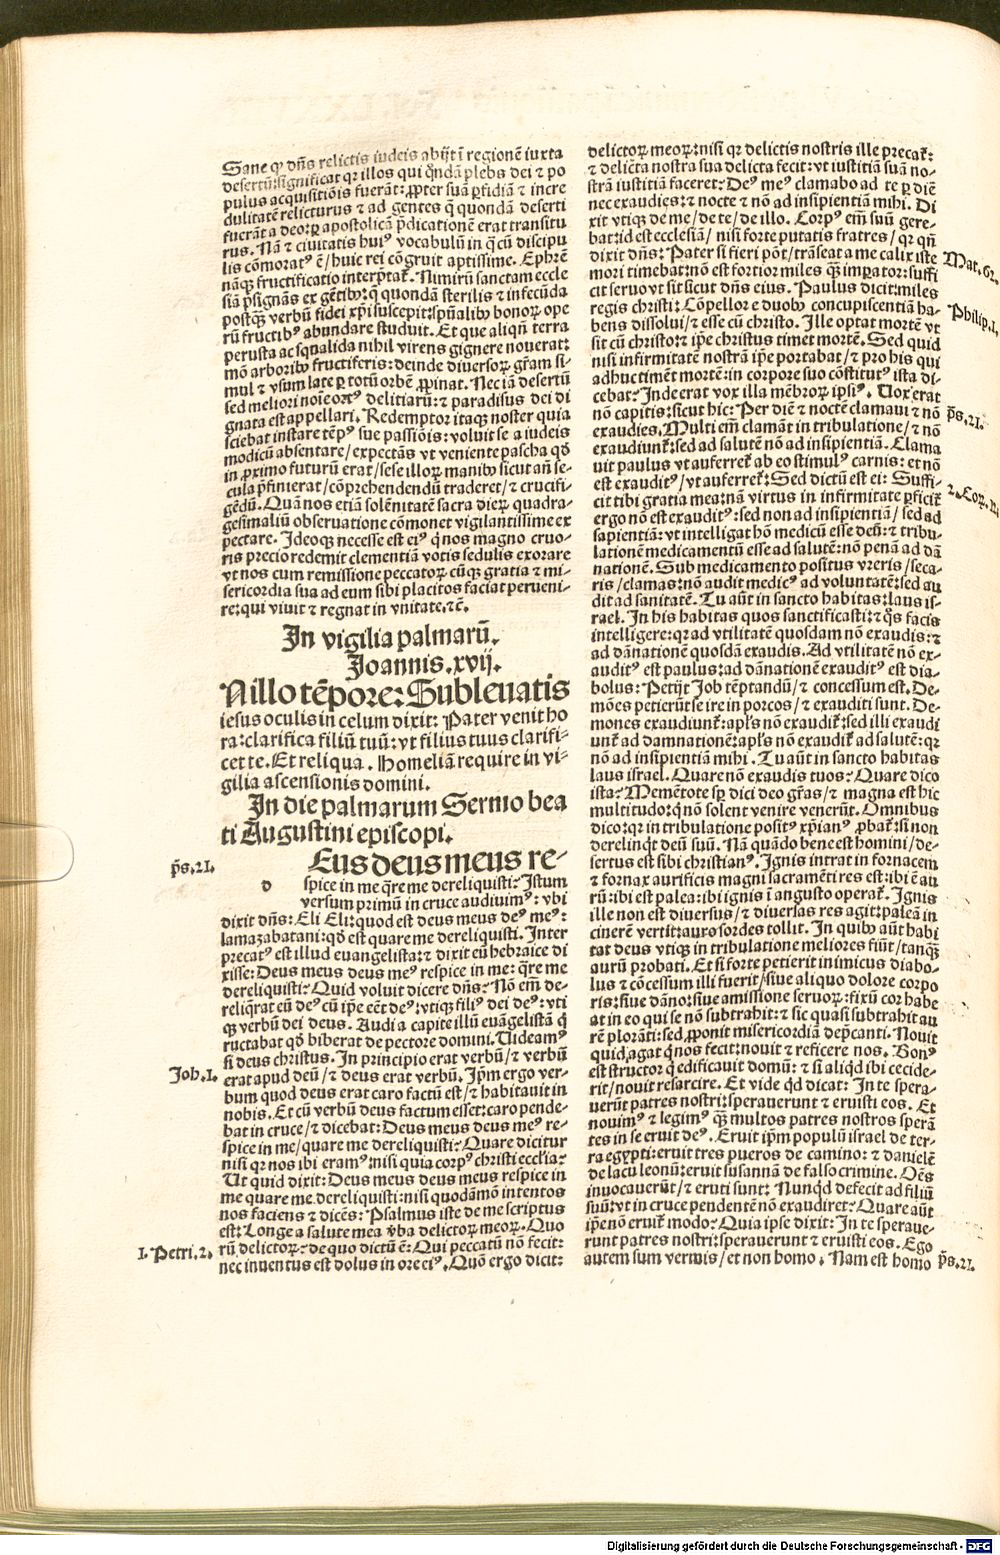 Sane qꝫ dñs relictis iudeis abijt ī regionē iuxta
desertū: significat qꝛ illos qui qͦndā plebs dei ⁊ po
pulus acquisitiōis fuerāt: ꝓpter suā ꝑfidiā ⁊ incre
dulitatē relicturus ⁊ ad gentes q̄ quondā deserti
fuerāt a deo: ꝑ apostolicā p̄dicationē erat transitu
rus. Nā ⁊ ciuitatis huiꝰ vocabulū in q̄ cū discipu
lis cōmoratꝰ ē / huic rei cōgruit aptissime. Ephrē
nāqꝫ fructificatio interp̄tat᷑. Nimirū sanctam eccle
siā p̄signās ex gētibꝰ: q̄ quondā sterilis ⁊ infecūda
postqꝫ̄ verbū fidei xp̄i suscepit: spūalibꝫ bonoꝝ ope
rū fructibꝰ abundare studuit. Et que aliqn̄ terra
perusta ac squalida nihil virens gignere nouerat:
mō arboribꝫ fructiferis: deinde diuersoꝝ gr̄am si-
mul ⁊ vsum late ꝑ totū orbē ꝓpinat. Nec iā desertū
sed meliori noīe ortꝰ delitiarū: ⁊ paradisus dei di
gnata est appellari. Redemptor itaqꝫ noster quia
sciebat instare tēpꝰ sue passiōis: voluit se a iudeis
modicū absentare / expectās vt veniente pascha qd̓
in ꝓximo futurū erat / sese illoꝝ manibꝫ sicut añ se-
cula p̄finierat / cōprehendendū traderet / ⁊ crucifi-
gēdū. Quā nos etiā solēnitatē sacra dieꝝ quadra-
gesimaliū obseruatione cōmonet vigilantissime ex
pectare. Ideoqꝫ necesse est eiꝰ q̇ nos magno cruo-
ris precio redemit clementiā votis sedulis exorare
vt nos cum remissione peccatoꝝ cūqꝫ gratia ⁊ mi-
sericordia sua ad eum sibi placitos faciat perueni-
re: qui viuit ⁊ regnat in vnitate. ⁊c̄.
In vigilia palmarū.
Joannis. xvij.
Nillo tēpore: Subleuatis
iesus oculis in celum dixit: Pater venit ho
ra: clarifica filiū tuū: vt filius tuus clarifi-
cet te. Et reliqua. Homeliā require in vi-
gilia ascensionis domini.
In die palmarum Sermo bea
ti Augustini episcopi.
ps̄. 21.
Eus deus meus re-
d spice in me q̄re me dereliquisti: Istum
versum primū in cruce audiuimꝰ: vbi
dixit dn̄s: Eli Eli: quod est deus meus deꝰ meꝰ:
lamazabatani: qd̓ est quare me dereliquisti. Inter
precatꝰ est illud euangelista: ⁊ dixit eū hebraice di
xisse: Deus meus deus meꝰ respice in me: q̄re me
dereliquisti: Quid voluit dicere dn̄s: Nō em̄ de-
reliq̄rat eū deꝰ cū ip̄e eēt deꝰ: vtiqꝫ filiꝰ dei deꝰ: vti
qꝫ verbū dei deus. Audi a capite illū euāgelistā q̇
ructabat qd̓ biberat de pectore domini. Uideamꝰ
si deus christus. In principio erat verbū / ⁊ verbū
Joh. 1.
erat apud deū / ⁊ deus erat verbū. Ip̄m ergo ver-
bum quod deus erat caro factū est / ⁊ habitauit in
nobis. Et cū verbū deus factum esset: caro pende-
bat in cruce / ⁊ dicebat: Deus meus deus meꝰ re-
spice in me / quare me dereliquisti: Quare dicitur
nisi qꝛ nos ibi eramꝰ: nisi quia corpꝰ christi ecclia:
Ut quid dixit: Deus meus deus meus respice in
me quare me dereliquisti: nisi quodāmō intentos
nos faciens ⁊ dicēs: Psalmus iste de me scriptus
est: Longe a salute mea v̓ba delictoꝝ meoꝝ. Quo
rū delictoꝝ: de quo dictū ē: Qui peccatū nō fecit:
1. Petri. 2.
nec inuentus est dolus in ore eiꝰ. Quō ergo dicit:
delictoꝝ meoꝝ: nisi qꝛ delictis nostris ille precat᷑:
⁊ delicta nostra sua delicta fecit: vt iustitiā suā no-
strā iustitiā faceret: Deꝰ meꝰ clamabo ad te ꝑ diē
nec exaudies: ⁊ nocte ⁊ nō ad insipientiā mihi. Di
xit vtiqꝫ de me / de te / de illo. Corpꝰ em̄ suū gere-
bat: id est ecclesiā / nisi forte putatis fratres / qꝛ qn̄
dixit dn̄s: Pater si fieri pōt / trāseat a me calix iste
Mat. 62.
mori timebat: nō est fortior miles qꝫ̄ imꝑator: suffi
cit seruo vt sit sicut dn̄s eius. Paulus dicit: miles
regis christi: Cōpellor e duobꝫ concupiscentiā ha-
Philip. 1.
bens dissolui / ⁊ esse cū christo. Ille optat mortē vt
sit cū christo: ⁊ ip̄e christus timet mortē. Sed quid
nisi infirmitatē nostrā ip̄e portabat / ⁊ pro his qui
adhuc timēt mortē: in corpore suo cōstitutꝰ ista di-
cebat: Inde erat vox illa mēbroꝝ ipsiꝰ. Uox erat
nō capitis: sicut hic: Per diē ⁊ noctē clamaui ⁊ nō
ps̄. 21.
exaudies. Multi em̄ clamāt in tribulatione / ⁊ nō
exaudiunt᷑: sed ad salutē nō ad insipientiā. Clama
uit paulus vt auferret᷑ ab eo stimulꝰ carnis: et nō
est exauditꝰ / vt auferret᷑: Sed dictū est ei: Suffi-
cit tibi gratia mea: nā virtus in infirmitate ꝑficit᷑
2. Cor. 12
ergo nō est exauditꝰ: sed non ad insipientiā / sed ad
sapientiā: vt intelligat hō medicū esse deū: ⁊ tribu-
lationē medicamentū esse ad salutē: nō penā ad dā
nationē. Sub medicamento positus vreris / seca-
ris / clamas: nō audit medicꝰ ad voluntatē: sed au
dit ad sanitatē. Tu aūt in sancto habitas: laus is-
rael. In his habitas quos sanctificasti: ⁊ q̇s facis
intelligere: qꝛ ad vtilitatē quosdam nō exaudis: ⁊
ad dānationē quosdā exaudis. Ad vtilitatē nō ex-
auditꝰ est paulus: ad dānationē exauditꝰ est dia-
bolus: Petijt Job tēptandū / ⁊ concessum est. De-
mōes petierūt se ire in porcos / ⁊ exauditi sunt. De-
mones exaudiunt᷑: apl̓s nō exaudit᷑: sed illi exaudi
unt᷑ ad damnationē: apl̓s nō exaudit᷑ ad salutē: qꝛ
nō ad insipientiā mihi. Tu aūt in sancto habitas
laus israel. Quare nō exaudis tuos: Quare dico
ista: Memētote sp̄ dici deo gr̄as / ⁊ magna est hic
multitudo: q̇ nō solent venire venerūt. Omnibus
dico: qꝛ in tribulatione positꝰ xp̄ianꝰ ꝓbat᷑: si non
derelinqͥt deū suū. Nā quādo bene est homini / de-
sertus est sibi christianꝰ. Ignis intrat in fornacem
⁊ fornax aurificis magni sacramēti res est: ibi ē au
rū: ibi est palea: ibi ignis ī angusto operat᷑. Ignis
ille non est diuersus / ⁊ diuersas res agit: paleā in
cinerē vertit: auro sordes tollit. In quibꝫ aūt habi
tat deus vtiqꝫ in tribulatione meliores fiūt / tanqꝫ̄
aurū probati. Et si forte petierit inimicus diabo-
lus ⁊ cōcessum illi fuerit / siue aliquo dolore corpo
ris: siue dāno: siue amissione seruoꝝ: fixū cor habe
at in eo qui se nō subtrahit: ⁊ sic quasi subtrahit au
rē plorāti: sed ꝓponit misericordiā dep̄canti. Nouit
quid agat q̇ nos fecit: nouit ⁊ reficere nos. Bonꝰ
est structor q̇ edificauit domū: ⁊ si aliqͥd ibi cecide-
rit / nouit resarcire. Et vide qͥd dicat: In te spera-
uerūt patres nostri: sperauerunt ⁊ eruisti eos. Et
nouimꝰ ⁊ legimꝰ qꝫ̄ multos patres nostros sperā
tes in se eruit deꝰ. Eruit ip̄m populū israel de ter-
ra egypti: eruit tres pueros de camino: ⁊ danielē
de lacu leonū: eruit susannā de falso crimine. Oēs
inuocauerūt / ⁊ eruti sunt: Nunqͥd defecit ad filiū
suū: vt in cruce pendentē nō exaudiret: Quare aūt
ip̄e nō eruit᷑ modo: Quia ipse dixit: In te speraue-
runt patres nostri: sperauerunt ⁊ eruisti eos. Ego
autem sum vermis / et non homo. Nam est homo
ps̄. 21.
Digitalisierung gefördert durch die Deutsche Forschungsgemeinschaft - DFG